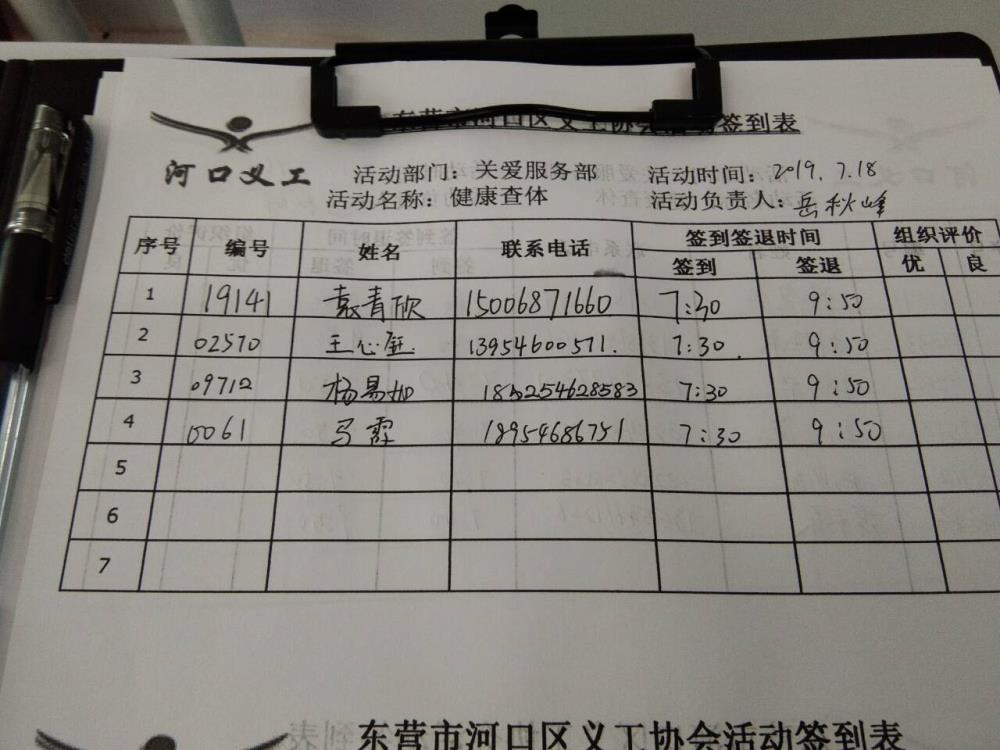 东营市河口区义工协会活动签到表
河口义工
活动部门：关爱服务部 活动时间：2019.7.18
活动名称：健康查体 活动负责人：岳秋峰
序号 编号 姓名 联系电话 签到签退时间 组织评价
签到 签退 优 良
1 19141 袁青欣 15006871660 7:30 9:50
2 02570 王心庭 13954600571. 7:30. 9:50
3 09712 杨易如 9:50 7:30
4 0061 马霖 18954686751 7:30 9:50
5
6
7
东营市河口区义工协会活动签到表